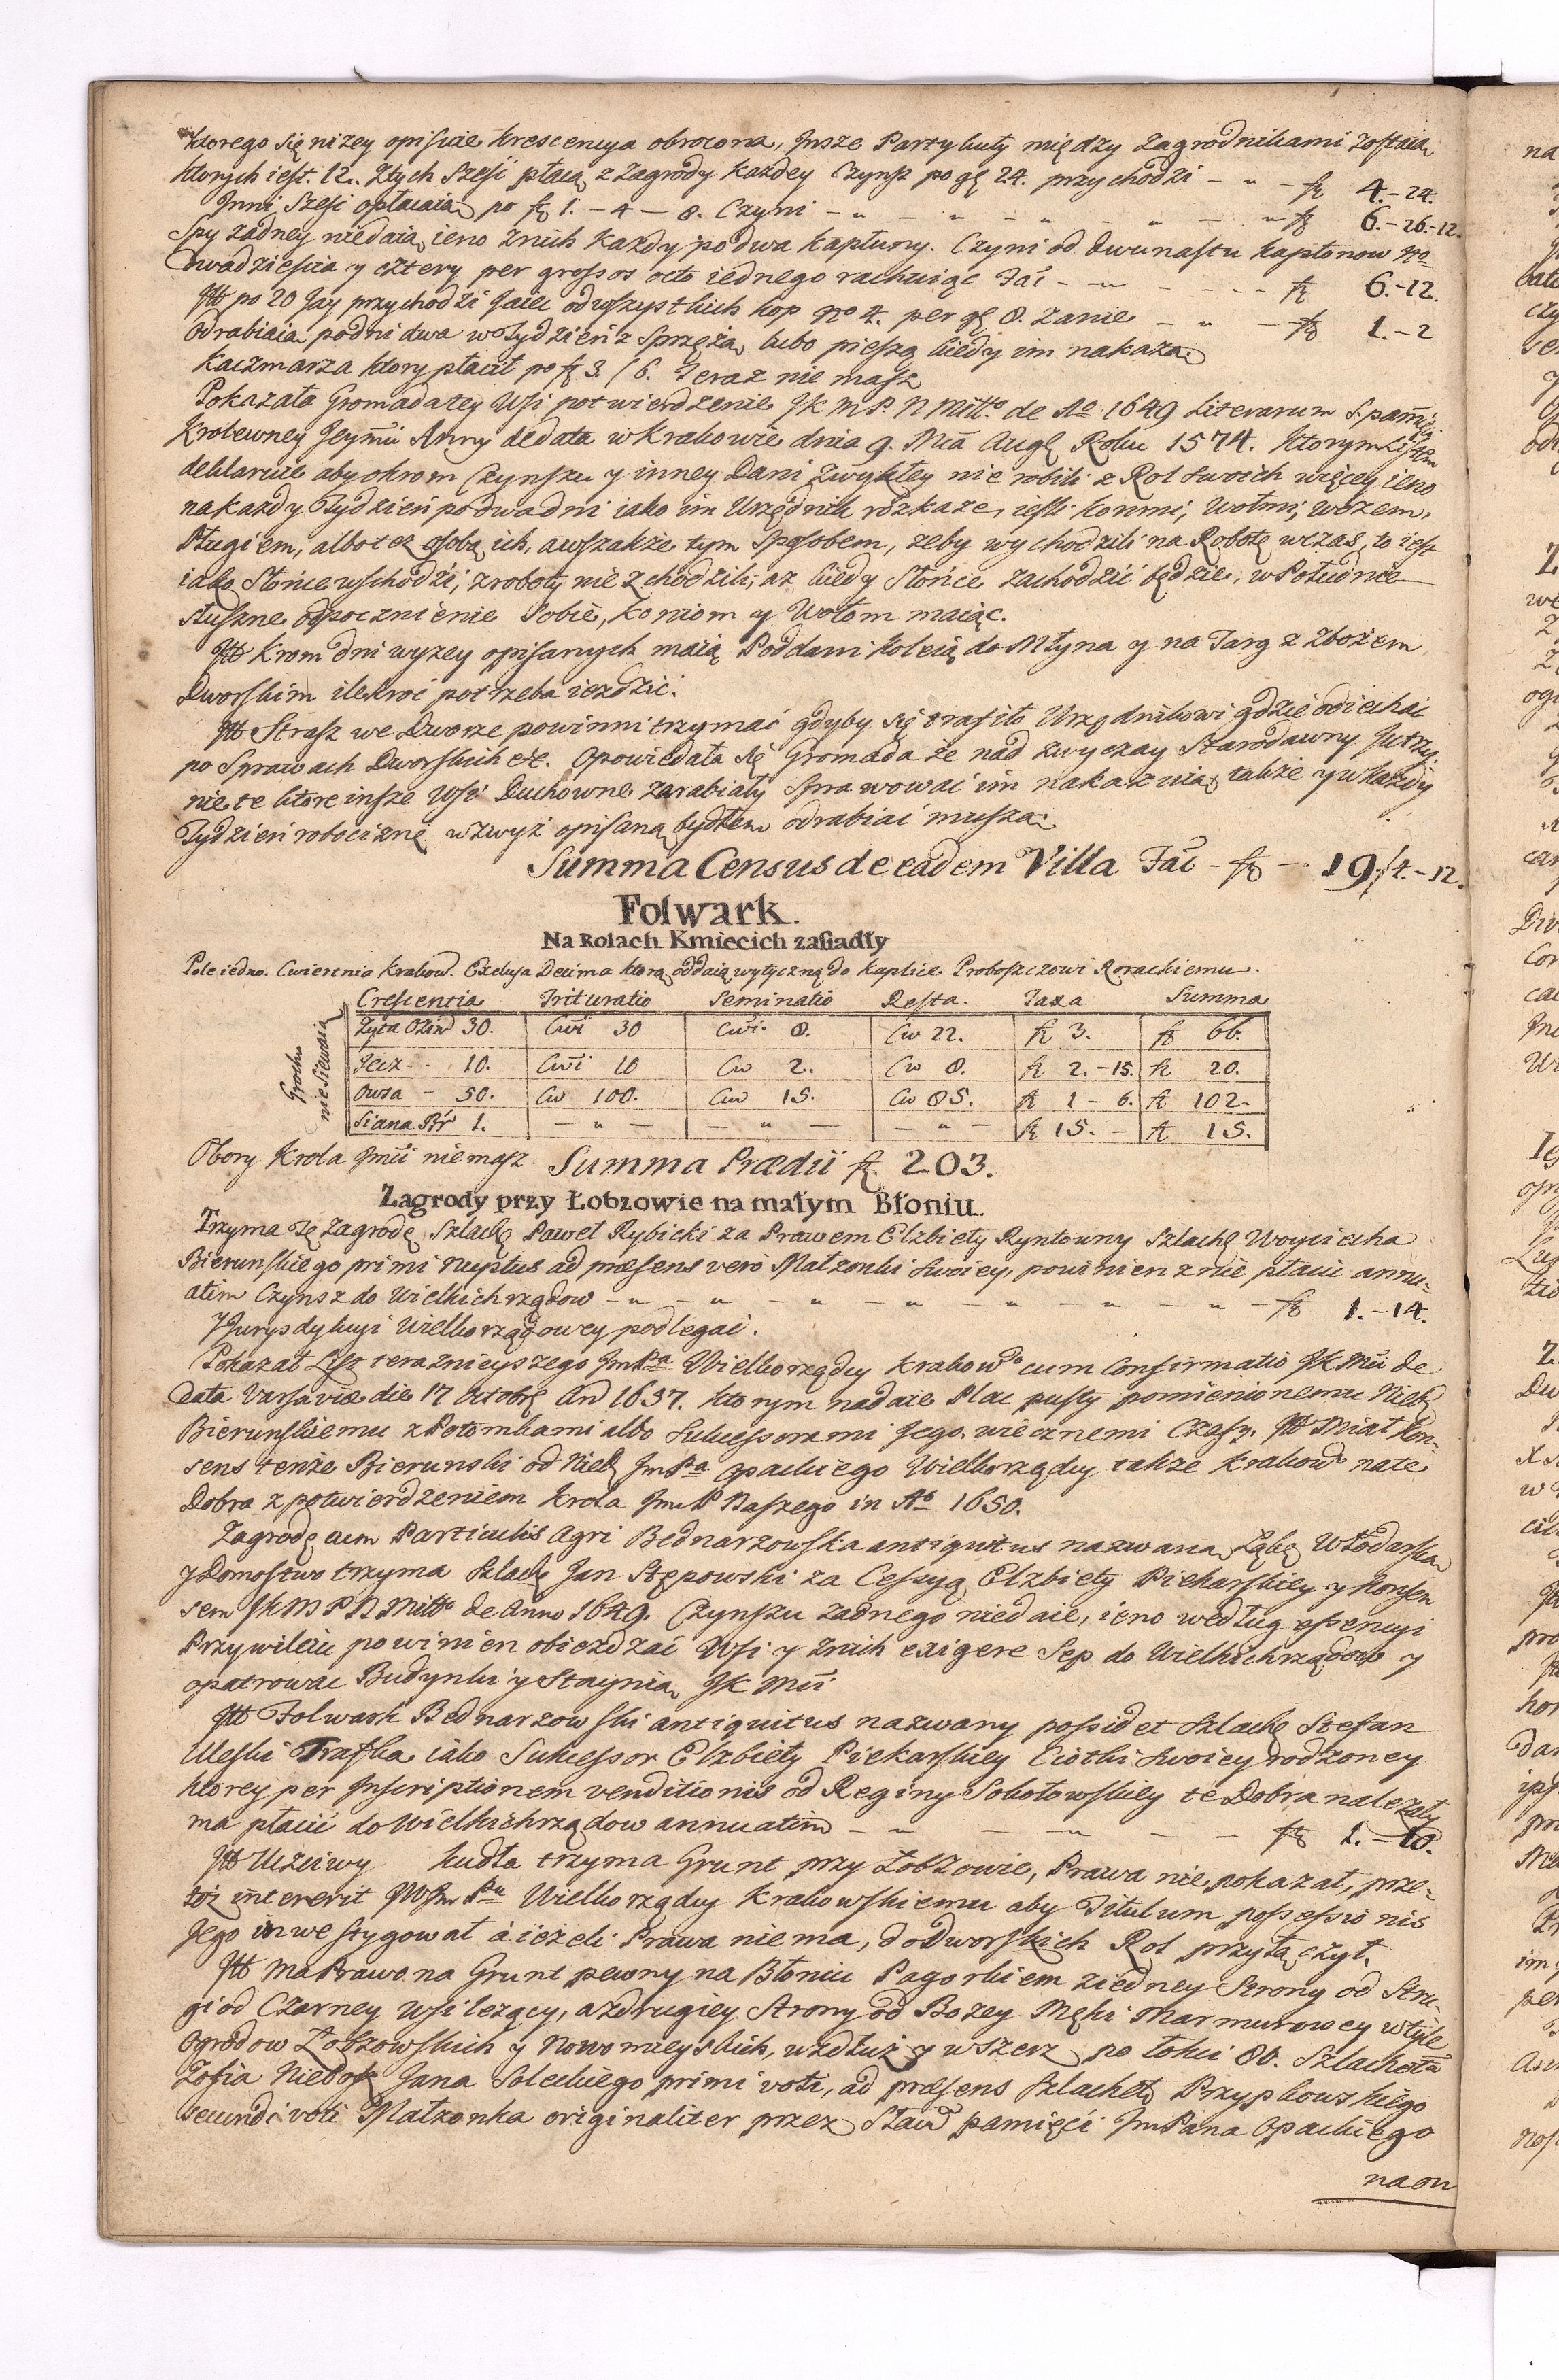 ktorego się niżey opisuie krescencya obrocona, Insze Partykuły między Zagrodnikami zostaią
ktorych iest. 12. Ztych Sześć płacą z Zagrody każdey Czynsz po gę 24. przychodzi - " - fł 4.-24.
Inni Sześć opłacaią po fł 1.-4-8. Czyni - " - " - " - " - " fł 6.-26.-12.
Spy żadney niedaią ieno Znich Każdy po dwa kapłuny. Czyni od Dwunastu kapłonow No
Dwadzieścia y cztery per grossos octo iednego rachuiąc Fac - " - - - - fł 6.-12.
Itt po 20 Jay przychodzi Jaiec odwszystkich kop No 4. per gę 8. Zanie - " - fł 1.-2
Odrabiaią podni dwa w Tydzień z Sprzężą lubo pieszo kiedy im nakażą
Kaczmarza ktory płacił po fł 3. /6. Teraz nie masz
Pokazała Gromada tey Wsi potwierdzenie JK M P. N Mitto. de Ao 1649 Literarum S. pamięci
Krolewney Jeymći Anny de data w Krakowie dnia 9. Mca Augę Roku 1574. Ktorym Listem
deklaruie aby okrom Czynszu y inney Dani Zwykłey nie robili z Rol swoich więcey ieno
na każdy Tydzień po dwa dni iako im Urzędnik rozkaże, iesli konmi, Wołmi, wozem,
Pługiem, albo też osobą ich, awszakże tym Sposobem, żeby wychodzili na Robotę wczas, to iest
iako Słońce wschodzi, z roboty nie zchodzili, aż kiedy Słońce zachodzić będzie, w Południe
słuszne odpocznienie Sobie, koniom y Wołom maiąc.
Itt Krom dni wyżey opisanych maią Poddani koleią do Młyna y na Targ z Zbożem
Dworskim ilekroć potrzeba ieździć.
Itt Strasz we Dworze powinni trzymać gdyby się trafiło Urzędnikowi gdzie odiechać
po Sprawach Dworskich etc. Opowiedała się Gromada że nad zwyczay Starodawny Jutrzy,
nie te ktore insze Wsi Duchowne zarabiały Sprawować im nakazuią także y w każdy
Tydzień robociznę wzwyż opisaną bydłem odrabiać muszą
Summa Census de eadem Villa Fac - fł - 19./4.-12.
Folwark.
Na Rolach Kmiecich zasiadły
Pole iedno. Cwiertnia Krakow. Excluja Decima ktorą oddaią wytyczną do kaplice Proboszczowi Rorackiemu.
Crescentia Trituratio Seminatio Resta. Taxa Summa
Grochu nie Siewaią
Zyta Ozim 30. Cwi 30 Cwi. 8. Cw 22. fł 3. fł 66.
Jecz - - 10. Cwi 10 Cw 2. Cw 8. fł 2.-15. fł 20.
Owsa - 50. Cw 100. Cw 15. Cw 85. fł 1-6. fł 102.
Siana Br 1. - " - - " - - " - fł 15.- fł 15.
Obory Krola Jmći niemasz. Summa Prædii fł. 203.
Zagrody przy Łobzowie na małym Błoniu.
Trzyma tę Zagrodę Szlachę Paweł Rybicki za Prawem Elzbiety Ryntowny Szlachę Woyciecha
Bierunskiego primi Nuptus ad præsens vero Małzonki swoiey, powinien z nie płacić annu-
atim Czynsz do Wielkichrządow - " - " - " - " - " - " - " - fł 1.-14.
Y Jurysdykcyi Wielkorządowey podlegać.
Pokazał List teraznieyszego Jm Pa Wielkorządcy Krakow cum Confirmatio JK Mći de
data Varsaviæ die 17 Octobrę An 1637. ktorym nadaie Plac pusty pomienionemu Niebę
Bierunskiemu z Potomkami albo Sukcessorami Jego. wiecznemi Czasy. Itt Miał Kon-
sens tenże Bierunski od Niebę Jm Pa Opackiego Wielkorządcy także Krakow na te
Dobra z potwierdzeniem Krola Jm P Naszego in Ao 1650.
Zagrodę cum Particulis Agri Bednarzowska antiquitus nazwaną Łąkę Włodarską
y Domostwo trzyma Szlachę Jan Stępowski za Cessyą Elzbiety Piekarskiey y Konsen
sem JK M P N Mitto de Anno 1649. Czynszu żadnego niedaie, ieno według essencyi
Przywileiu powinien obieżdzać Wsi y Znich exigere Sep do Wielkichrządow y
opatrować Budynki y Staynią JK Mći
Itt Folwark Bednarzowski antiquitus nazwany possidet Szlachę Stefan
Uleski Trafka iako Sukcessor Elzbiety Piekarskiey Ciotki swoiey rodzoney
ktorey per Inscriptionem venditionis od Reginy Sobotowskiey te Dobra należały
ma płacić do Wielkichrządow annuatim - " - - " - - fł 1.-10.
Itt Uczciwy Kudła trzyma Grunt przy Łobzowie, Prawa nie pokazał, prze-
toż intererit JW Jm Pu Wielkorządcy Krakowskiemu aby Titulum possessionis
Jego inwestygował á ieżeli Prawa niema, do Dworskich Rol przyłączył.
Itt Ma Prawo na Grunt pewny na Błoniu Pagorkiem z iedney Strony od Stru-
gi od Czarney Wsi leżący, a z drugiey Strony od Bożey Męki Marmurowey w tyle
Ogrodow Łobzowskich y Nowomieyskich, wzdłuż y w szerz po łokci 80. Szlachetna
Zofia Niebosz Jana Soleckiego primi voti, ad præsens Szlachetę Przypkowskiego
secundi voti Małzonka originaliter przez Sław pamięći Jm Pana Opackiego
na on